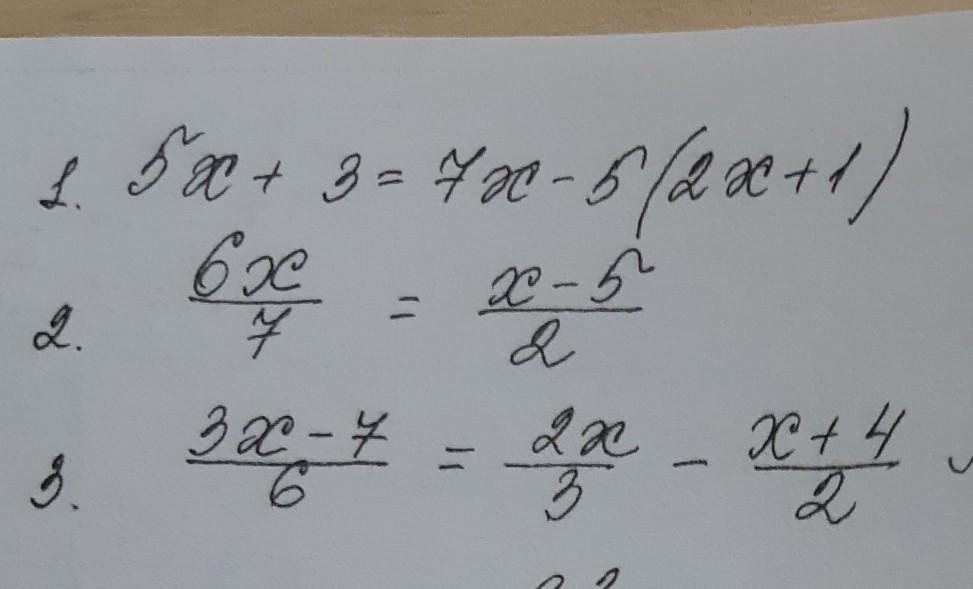 1. 5x + 3 = 7x - 5(2x+1)
2. 6x/7 = x-5/2
3. 3x-7/6 = 2x/3 - x+4/2